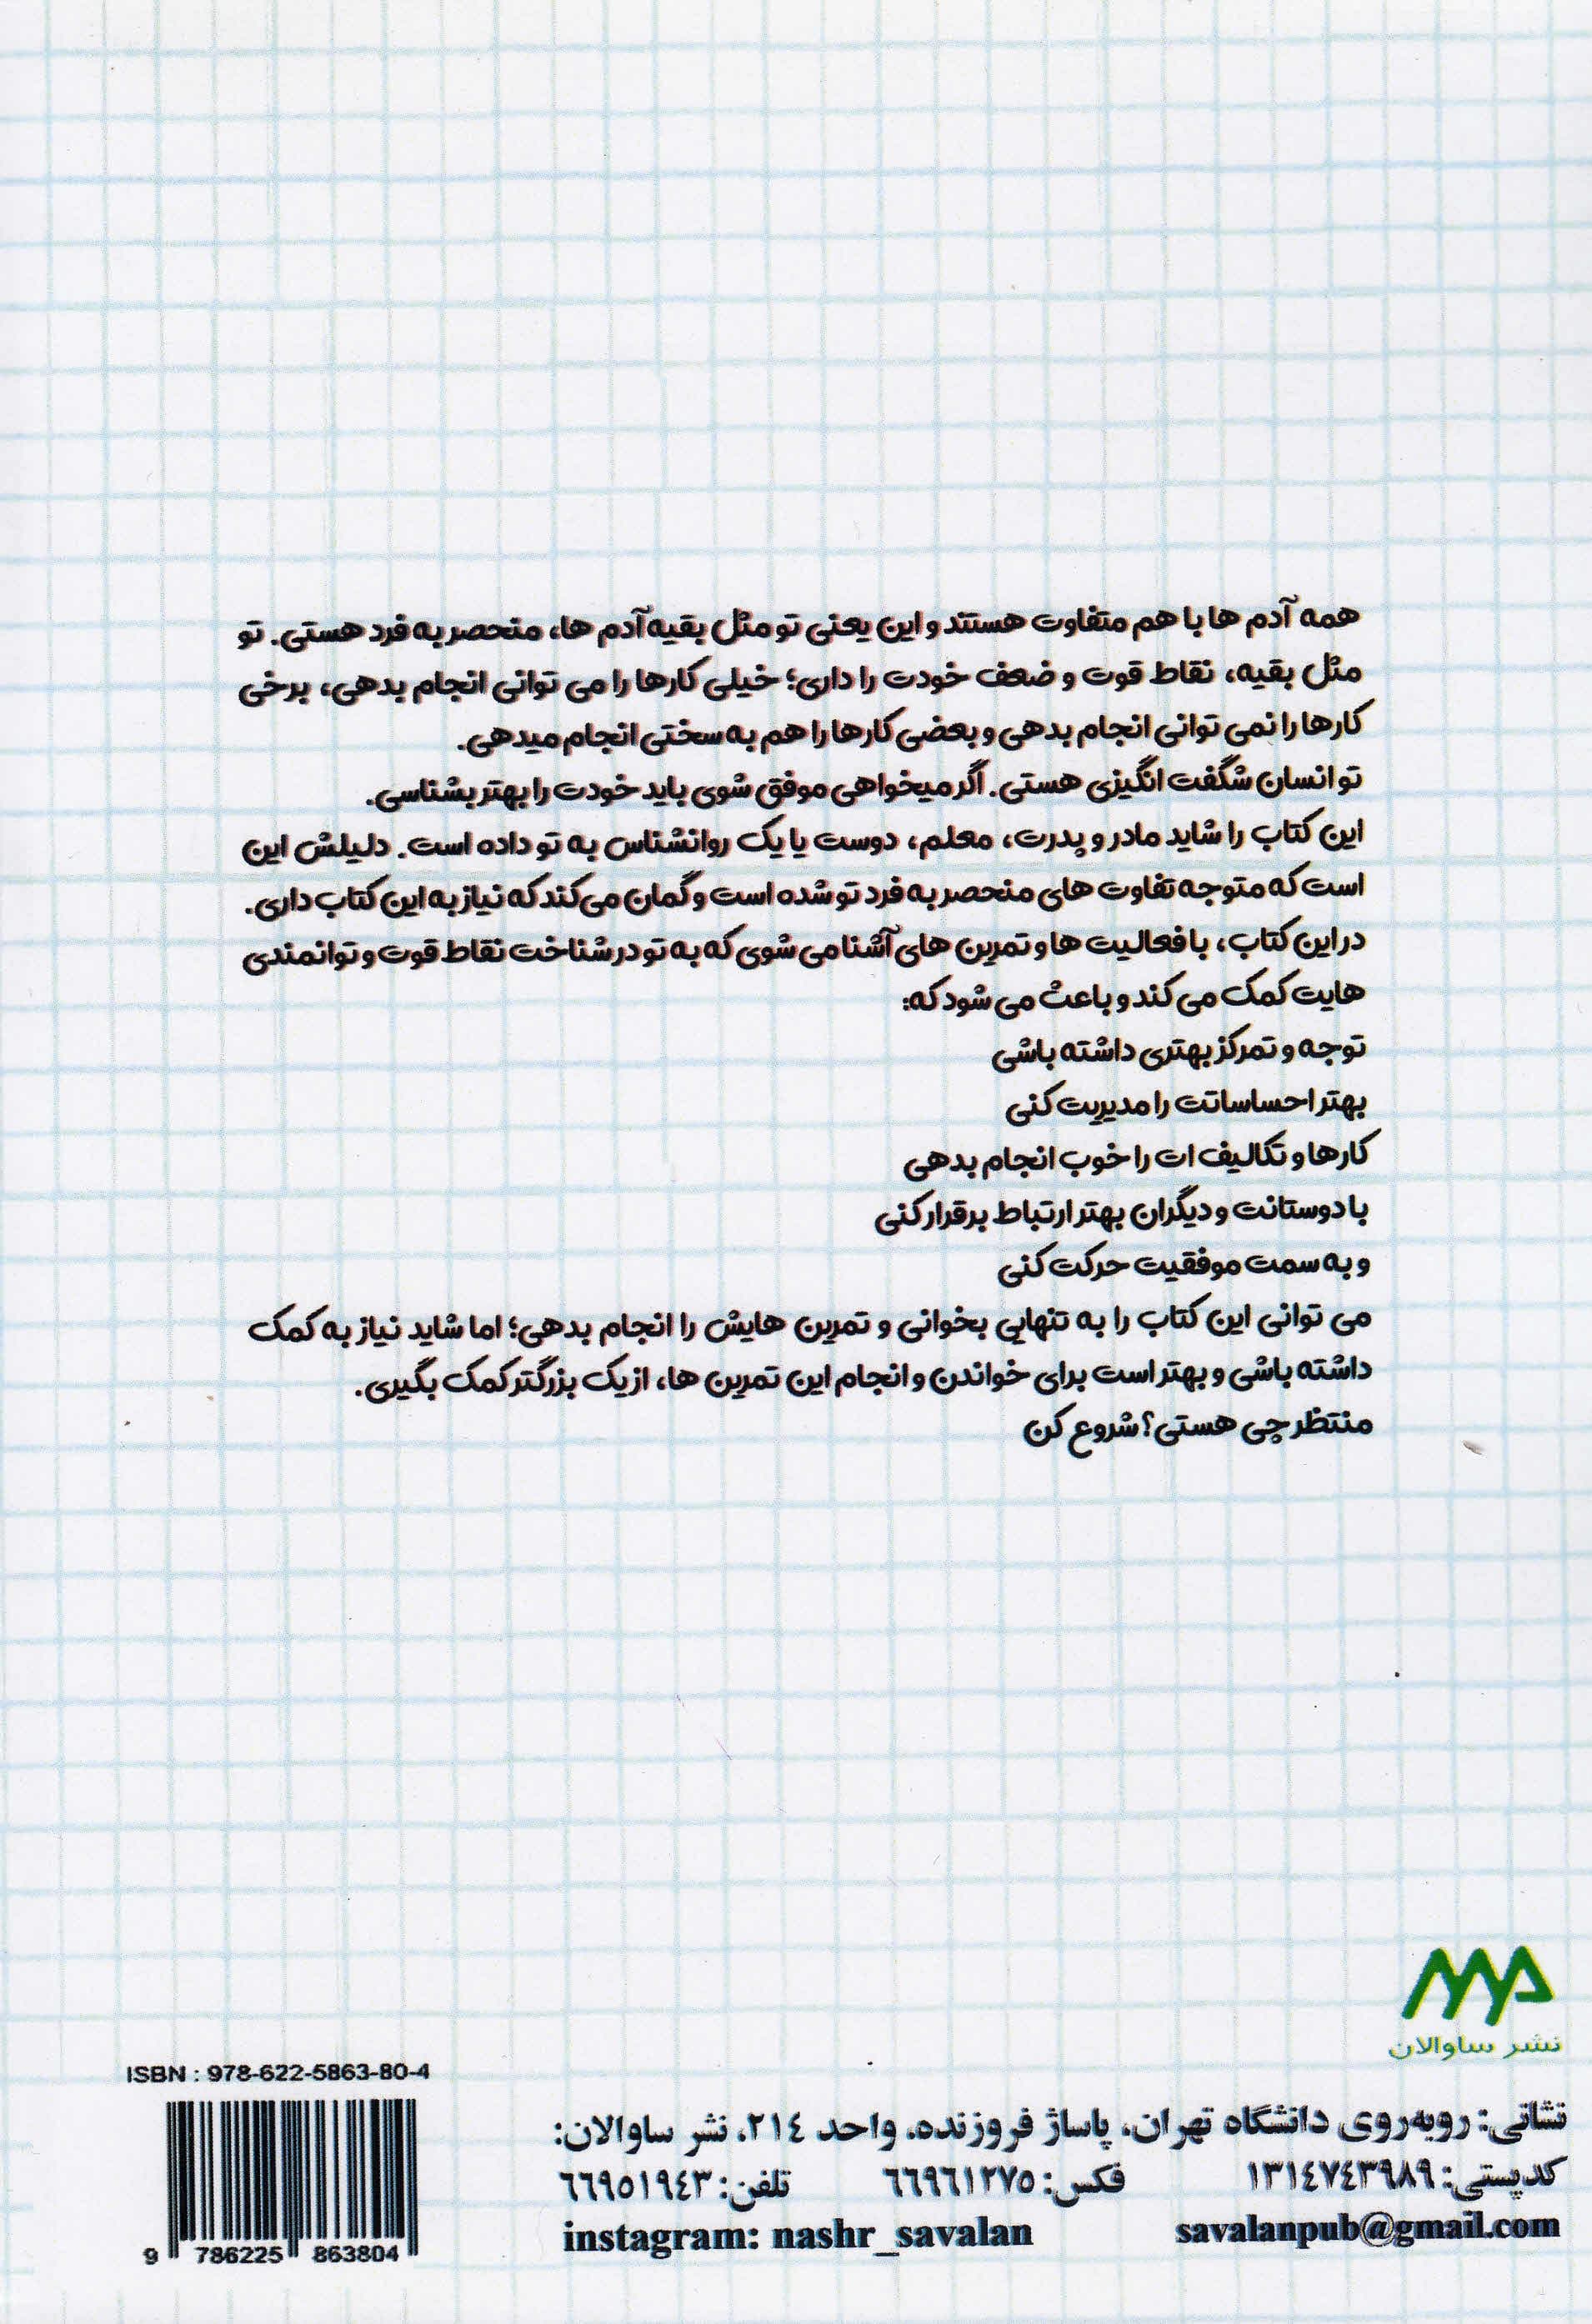 همه آدم ها با هم متفاوت هستند و این یعنی تو مثل بقیه آدم ها، منحصر به فرد هستی. تو
مثل بقیه، نقاط قوت و ضعف خودت را داری؛ خیلی کارها را می توانی انجام بدهی، برخی
کارها را نمی توانی انجام بدهی و بعضی کارها را هم به سختی انجام میدهی.
تو انسان شگفت انگیزی هستی. اگر میخواهی موفق شوی باید خودت را بهتر بشناسی.
این کتاب را شاید مادر و پدرت، معلم، دوست یا یک روانشناس به تو داده است. دلیلش این
است که متوجه تفاوت های منحصر به فرد تو شده است و گمان می‌کند که نیاز به این کتاب داری.
در این کتاب، با فعالیت ها و تمرین های آشنا می شوی که به تو در شناخت نقاط قوت و توانمندی
هایت کمک می کند و باعث می شود که:
توجه و تمرکز بهتری داشته باشی
بهتر احساساتت را مدیریت کنی
کارها و تکالیف ات را خوب انجام بدهی
با دوستانت و دیگران بهتر ارتباط برقرار کنی
و به سمت موفقیت حرکت کنی
می توانی این کتاب را به تنهایی بخوانی و تمرین هایش را انجام بدهی؛ اما شاید نیاز به کمک
داشته باشی و بهتر است برای خواندن و انجام این تمرین ها، از یک بزرگتر کمک بگیری.
منتظر چی هستی؟ شروع کن
نشر ساوالان
ISBN : 978-622-5863-80-4
9 786225 863804
نشانی: روبه‌روی دانشگاه تهران، پاساژ فروزنده، واحد ۲۱٤، نشر ساوالان:
کدپستی: ۱۳۱٤۷٤۳۹۸۹ فکس: ٦٦۹٦۱۲۷٥ تلفن: ٦٦۹٥۱۹٤۳
savalanpub@gmail.com instagram: nashr_savalan